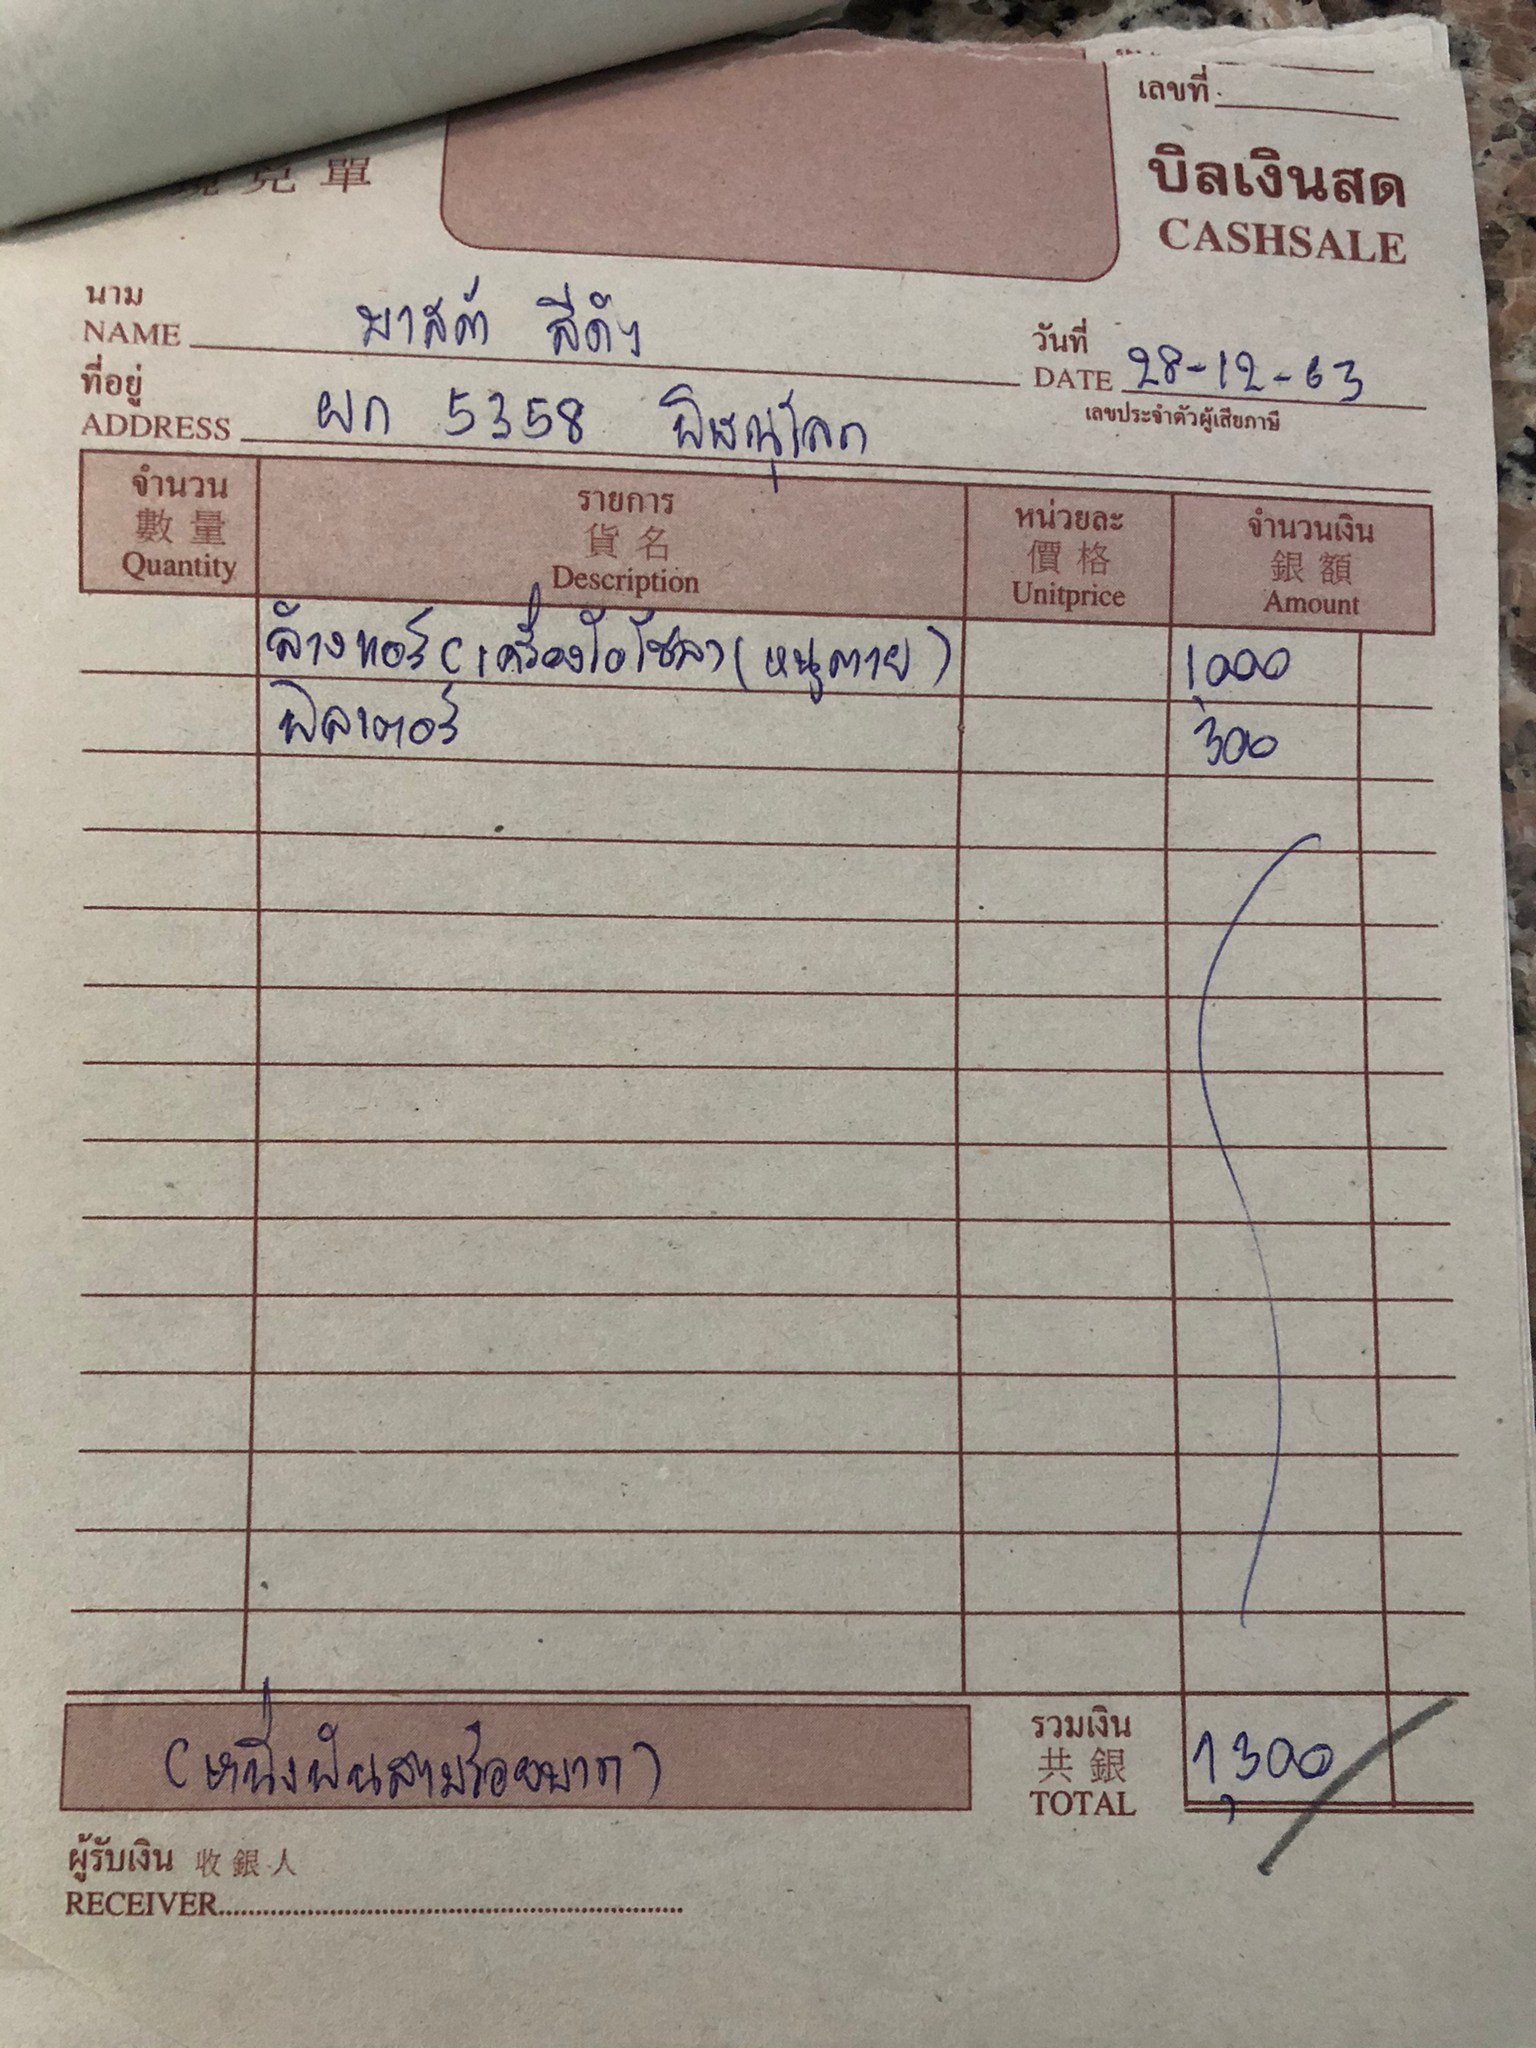 เลขที่
現兌單
บิลเงินสด
CASHSALE
นาม
NAME มาสด้า สีดำ
วันที่
DATE 28-12-63
ที่อยู่
ADDRESS ผก 5358 พิษณุโลก
เลขประจำตัวผู้เสียภาษี
จำนวน รายการ หน่วยละ จำนวนเงิน
數量 貨名 價格 銀額
Quantity Description Unitprice Amount
ล้างแอร์ (เครื่องโอโซน) (หนูตาย) 1000
ฟิลเตอร์ 300
(หนึ่งพันสามร้อยบาท) รวมเงิน 1,300
共銀
TOTAL
ผู้รับเงิน 收銀人
RECEIVER